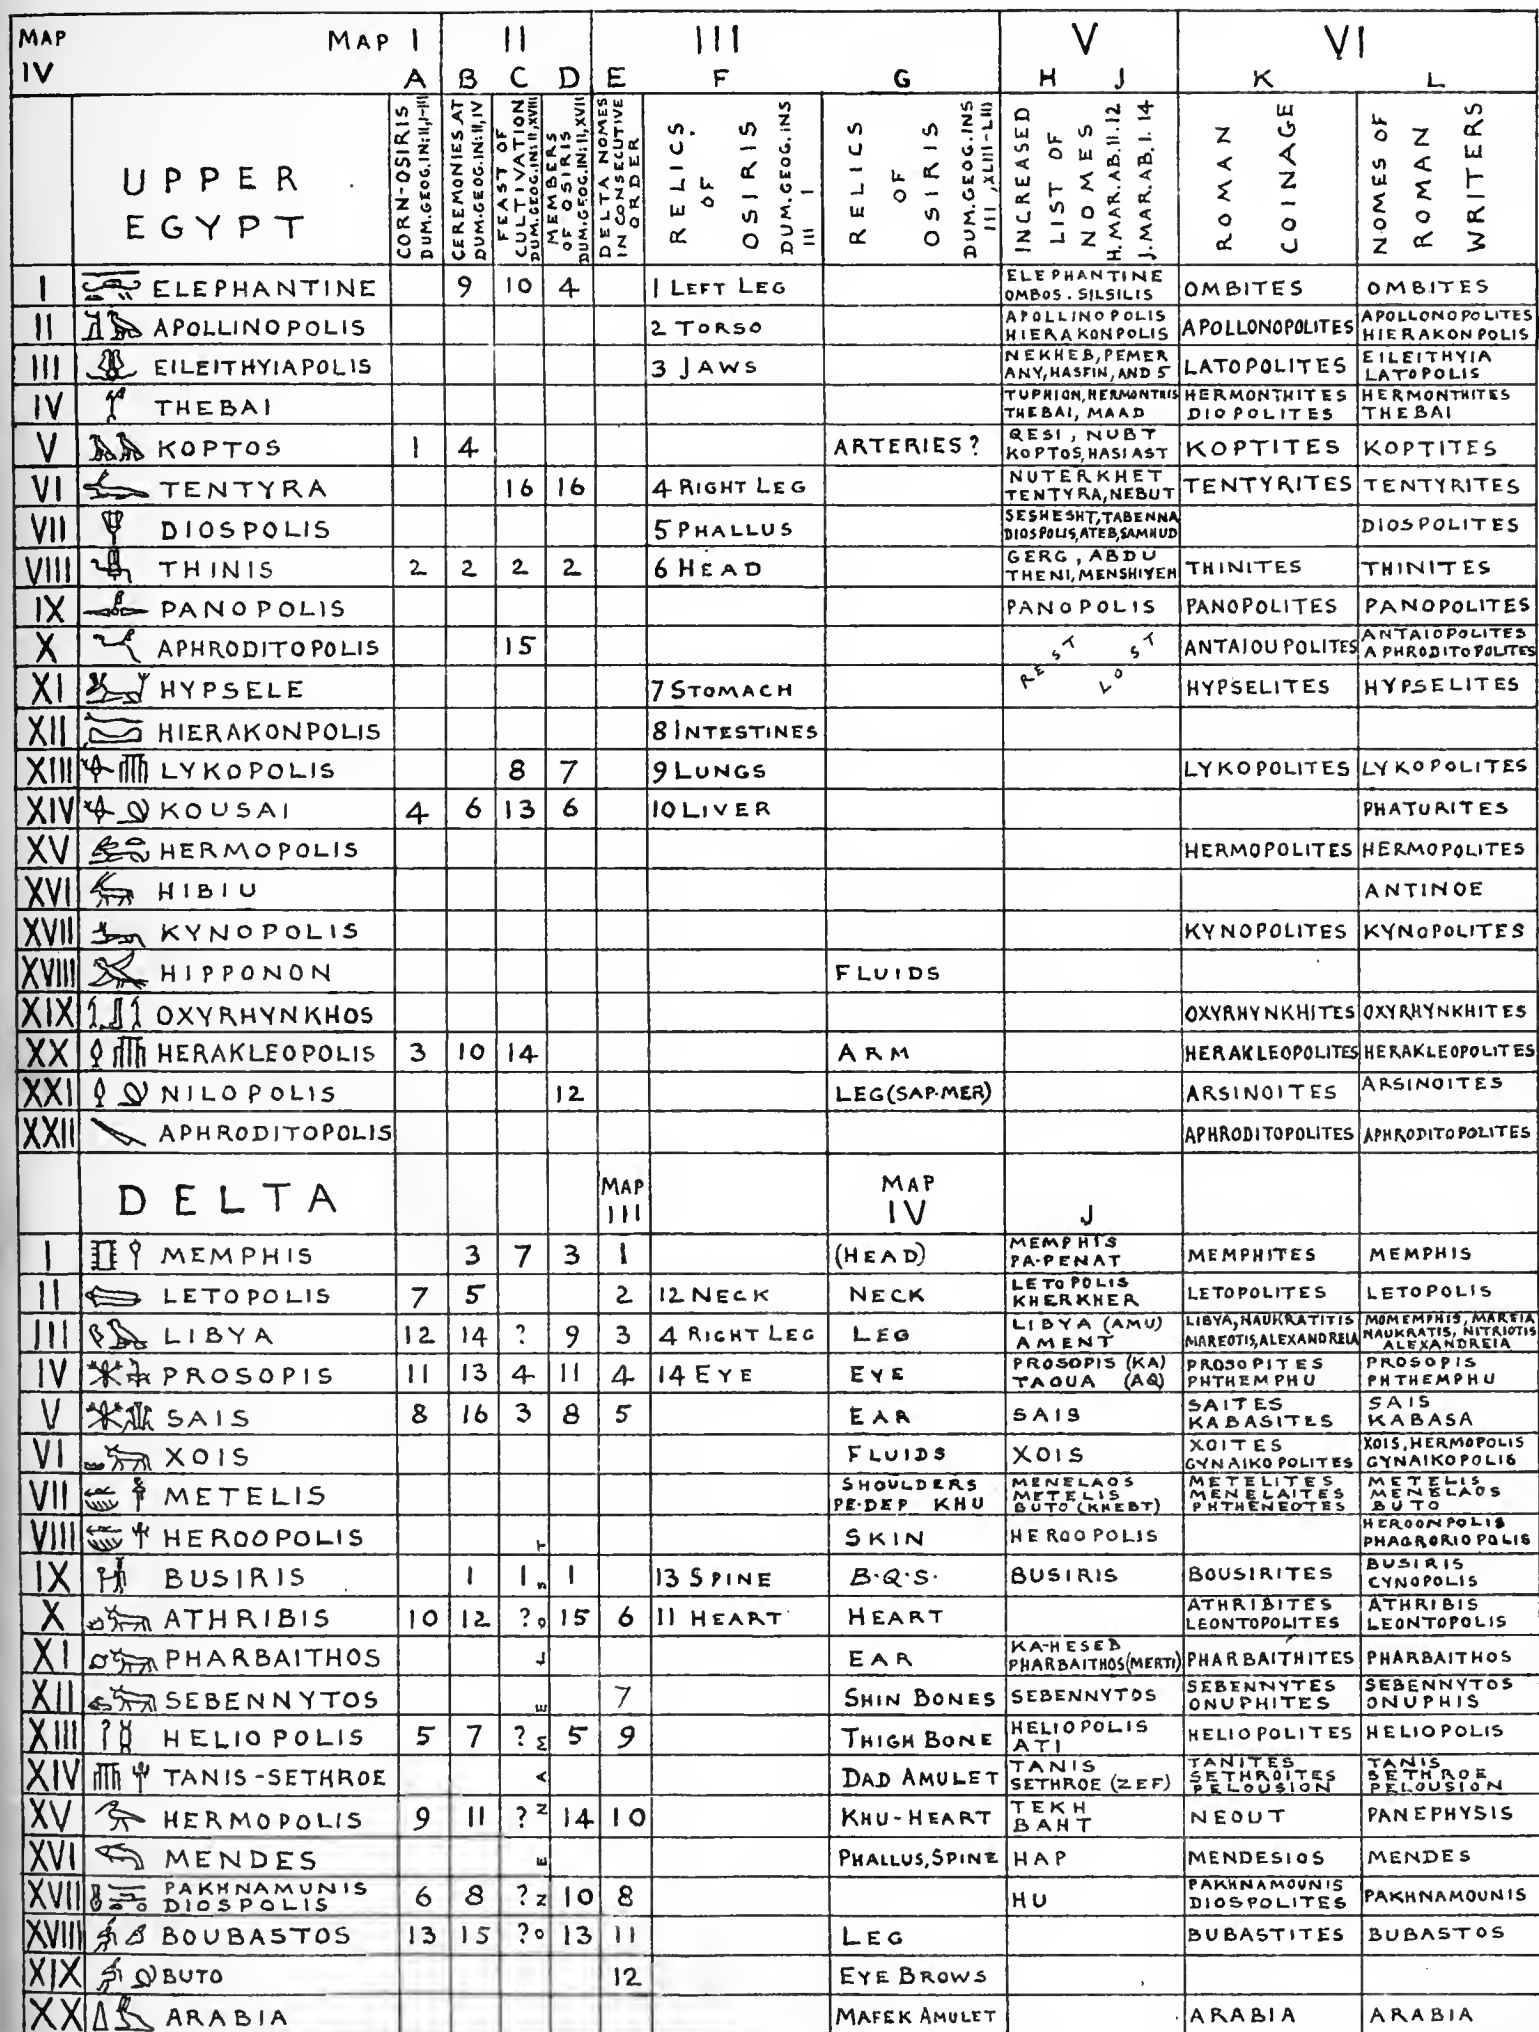 MAP IV MAP I II III V VI
A B C D E F G H J K L
UPPER EGYPT
CORN-OSIRIS DUM.GEOG.IN:II,I-III
CEREMONIES AT DUM.GEOG.IN:II,IV
FEAST OF CULTIVATION DUM.GEOG.IN:II,XVIII
MEMBERS OF OSIRIS DUM.GEOG.IN:II,XVII
DELTA NOMES IN CONSECUTIVE ORDER
RELICS OF OSIRIS DUM.GEOG.INS III I
RELICS OF OSIRIS DUM.GEOG.INS III, XLIII-LIII
INCREASED LIST OF NOMES H.MAR.AB.II.12 J.MAR.AB.I.14
ROMAN COINAGE
NOMES OF ROMAN WRITERS
I ELEPHANTINE 9 10 4 1 LEFT LEG ELEPHANTINE OMBOS. SILSILIS OMBITES OMBITES
II APOLLINOPOLIS 2 TORSO APOLLINOPOLIS HIERAKONPOLIS APOLLONOPOLITES APOLLONOPOLITES HIERAKONPOLIS
III EILEITHYIAPOLIS 3 JAWS NEKHEB, PEMER ANY, HASFIN, AND 5 LATOPOLITES EILEITHYIA LATOPOLIS
IV THEBAI TUPHION, HERMONTHIS THEBAI, MAAD HERMONTHITES DIOPOLITES HERMONTHITES THEBAI
V KOPTOS 1 4 ARTERIES? QESI, NUBT KOPTOS, HASIAST KOPTITES KOPTITES
VI TENTYRA 16 16 4 RIGHT LEG NUTERKHET TENTYRA, NEBUT TENTYRITES TENTYRITES
VII DIOSPOLIS 5 PHALLUS SESHESHT, TABENNA DIOSPOLIS, ATEB, SAMHUD DIOSPOLITES
VIII THINIS 2 2 2 2 6 HEAD GERG, ABDU THENI, MENSHIYEH THINITES THINITES
IX PANOPOLIS PANOPOLIS PANOPOLITES PANOPOLITES
X APHRODITOPOLIS 15 REST LOST ANTAIOUPOLITES ANTAIOPOLITES APHRODITOPOLITES
XI HYPSELE 7 STOMACH HYPSELITES HYPSELITES
XII HIERAKONPOLIS 8 INTESTINES
XIII LYKOPOLIS 8 7 9 LUNGS LYKOPOLITES LYKOPOLITES
XIV KOUSAI 4 6 13 6 10 LIVER PHATURITES
XV HERMOPOLIS HERMOPOLITES HERMOPOLITES
XVI HIBIU ANTINOE
XVII KYNOPOLIS KYNOPOLITES KYNOPOLITES
XVIII HIPPONON FLUIDS
XIX OXYRHYNKHOS OXYRHYNKHITES OXYRHYNKHITES
XX HERAKLEOPOLIS 3 10 14 ARM HERAKLEOPOLITES HERAKLEOPOLITES
XXI NILOPOLIS 12 LEG (SAP-MER) ARSINOITES ARSINOITES
XXII APHRODITOPOLIS APHRODITOPOLITES APHRODITOPOLITES
DELTA MAP III MAP IV J
I MEMPHIS 3 7 3 1 (HEAD) MEMPHIS PA-PENAT MEMPHITES MEMPHIS
II LETOPOLIS 7 5 2 12 NECK NECK LETOPOLIS KHERKHER LETOPOLITES LETOPOLIS
III LIBYA 12 14 ? 9 3 4 RIGHT LEG LEG LIBYA (AMU) AMENT LIBYA, NAUKRATITIS MAREOTIS, ALEXANDREIA MOMEMPHIS, MAREIA NAUKRATIS, NITRIOTIS ALEXANDREIA
IV PROSOPIS 11 13 4 11 4 14 EYE EYE PROSOPIS (KA) TAOUA (AQ) PROSOPITES PHTHEMPHU PROSOPIS PHTHEMPHU
V SAIS 8 16 3 8 5 EAR SAIS SAITES KABASITES SAIS KABASA
VI XOIS FLUIDS XOIS XOITES GYNAIKOPOLITES XOIS, HERMOPOLIS GYNAIKOPOLIS
VII METELIS SHOULDERS PE-DEP KHU MENELAOS METELIS BUTO (KHEBT) METELITES MENELAITES PHTHENEOTES METELIS MENELAOS BUTO
VIII HEROOPOLIS SKIN HEROOPOLIS HEROONPOLIS PHAGRORIOPOLIS
IX BUSIRIS 1 1 1 13 SPINE B.Q.S. BUSIRIS BOUSIRITES BUSIRIS CYNOPOLIS
X ATHRIBIS 10 12 ? 15 6 11 HEART HEART ATHRIBITES LEONTOPOLITES ATHRIBIS LEONTOPOLIS
XI PHARBAITHOS EAR KA-HESEB PHARBAITHOS (MERTI) PHARBAITHITES PHARBAITHOS
XII SEBENNYTOS 7 SHIN BONES SEBENNYTOS SEBENNYTES ONUPHITES SEBENNYTOS ONUPHIS
XIII HELIOPOLIS 5 7 ? 5 9 THIGH BONE HELIOPOLIS ATI HELIOPOLITES HELIOPOLIS
XIV TANIS-SETHROE DAD AMULET TANIS SETHROE (ZEF) TANITES SETHROITES PELOUSION TANIS SETHROE PELOUSION
XV HERMOPOLIS 9 11 ? 14 10 KHU-HEART TEKH BAHT NEOUT PANEPHYSIS
XVI MENDES PHALLUS, SPINE HAP MENDESIOS MENDES
XVII PAKHNAMUNIS DIOSPOLIS 6 8 ? 10 8 HU PAKHNAMOUNIS DIOSPOLITES PAKHNAMOUNIS
XVIII BOUBASTOS 13 15 ? 13 11 LEG BUBASTITES BUBASTOS
XIX BUTO 12 EYE BROWS
XX ARABIA MAFEK AMULET ARABIA ARABIA
NO ZE NAMES LOST